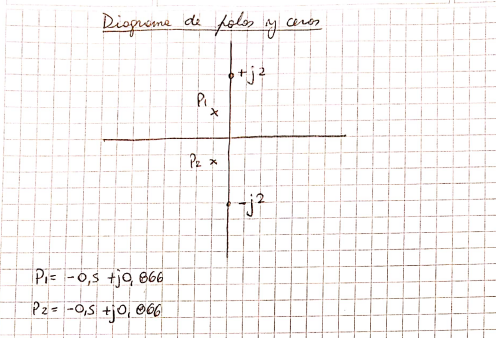 Diagrama de polos y ceros
+j2
P1
x
P2 x
-j2
P1= -0,5 +j0,866
P2= -0,5 +j0,866